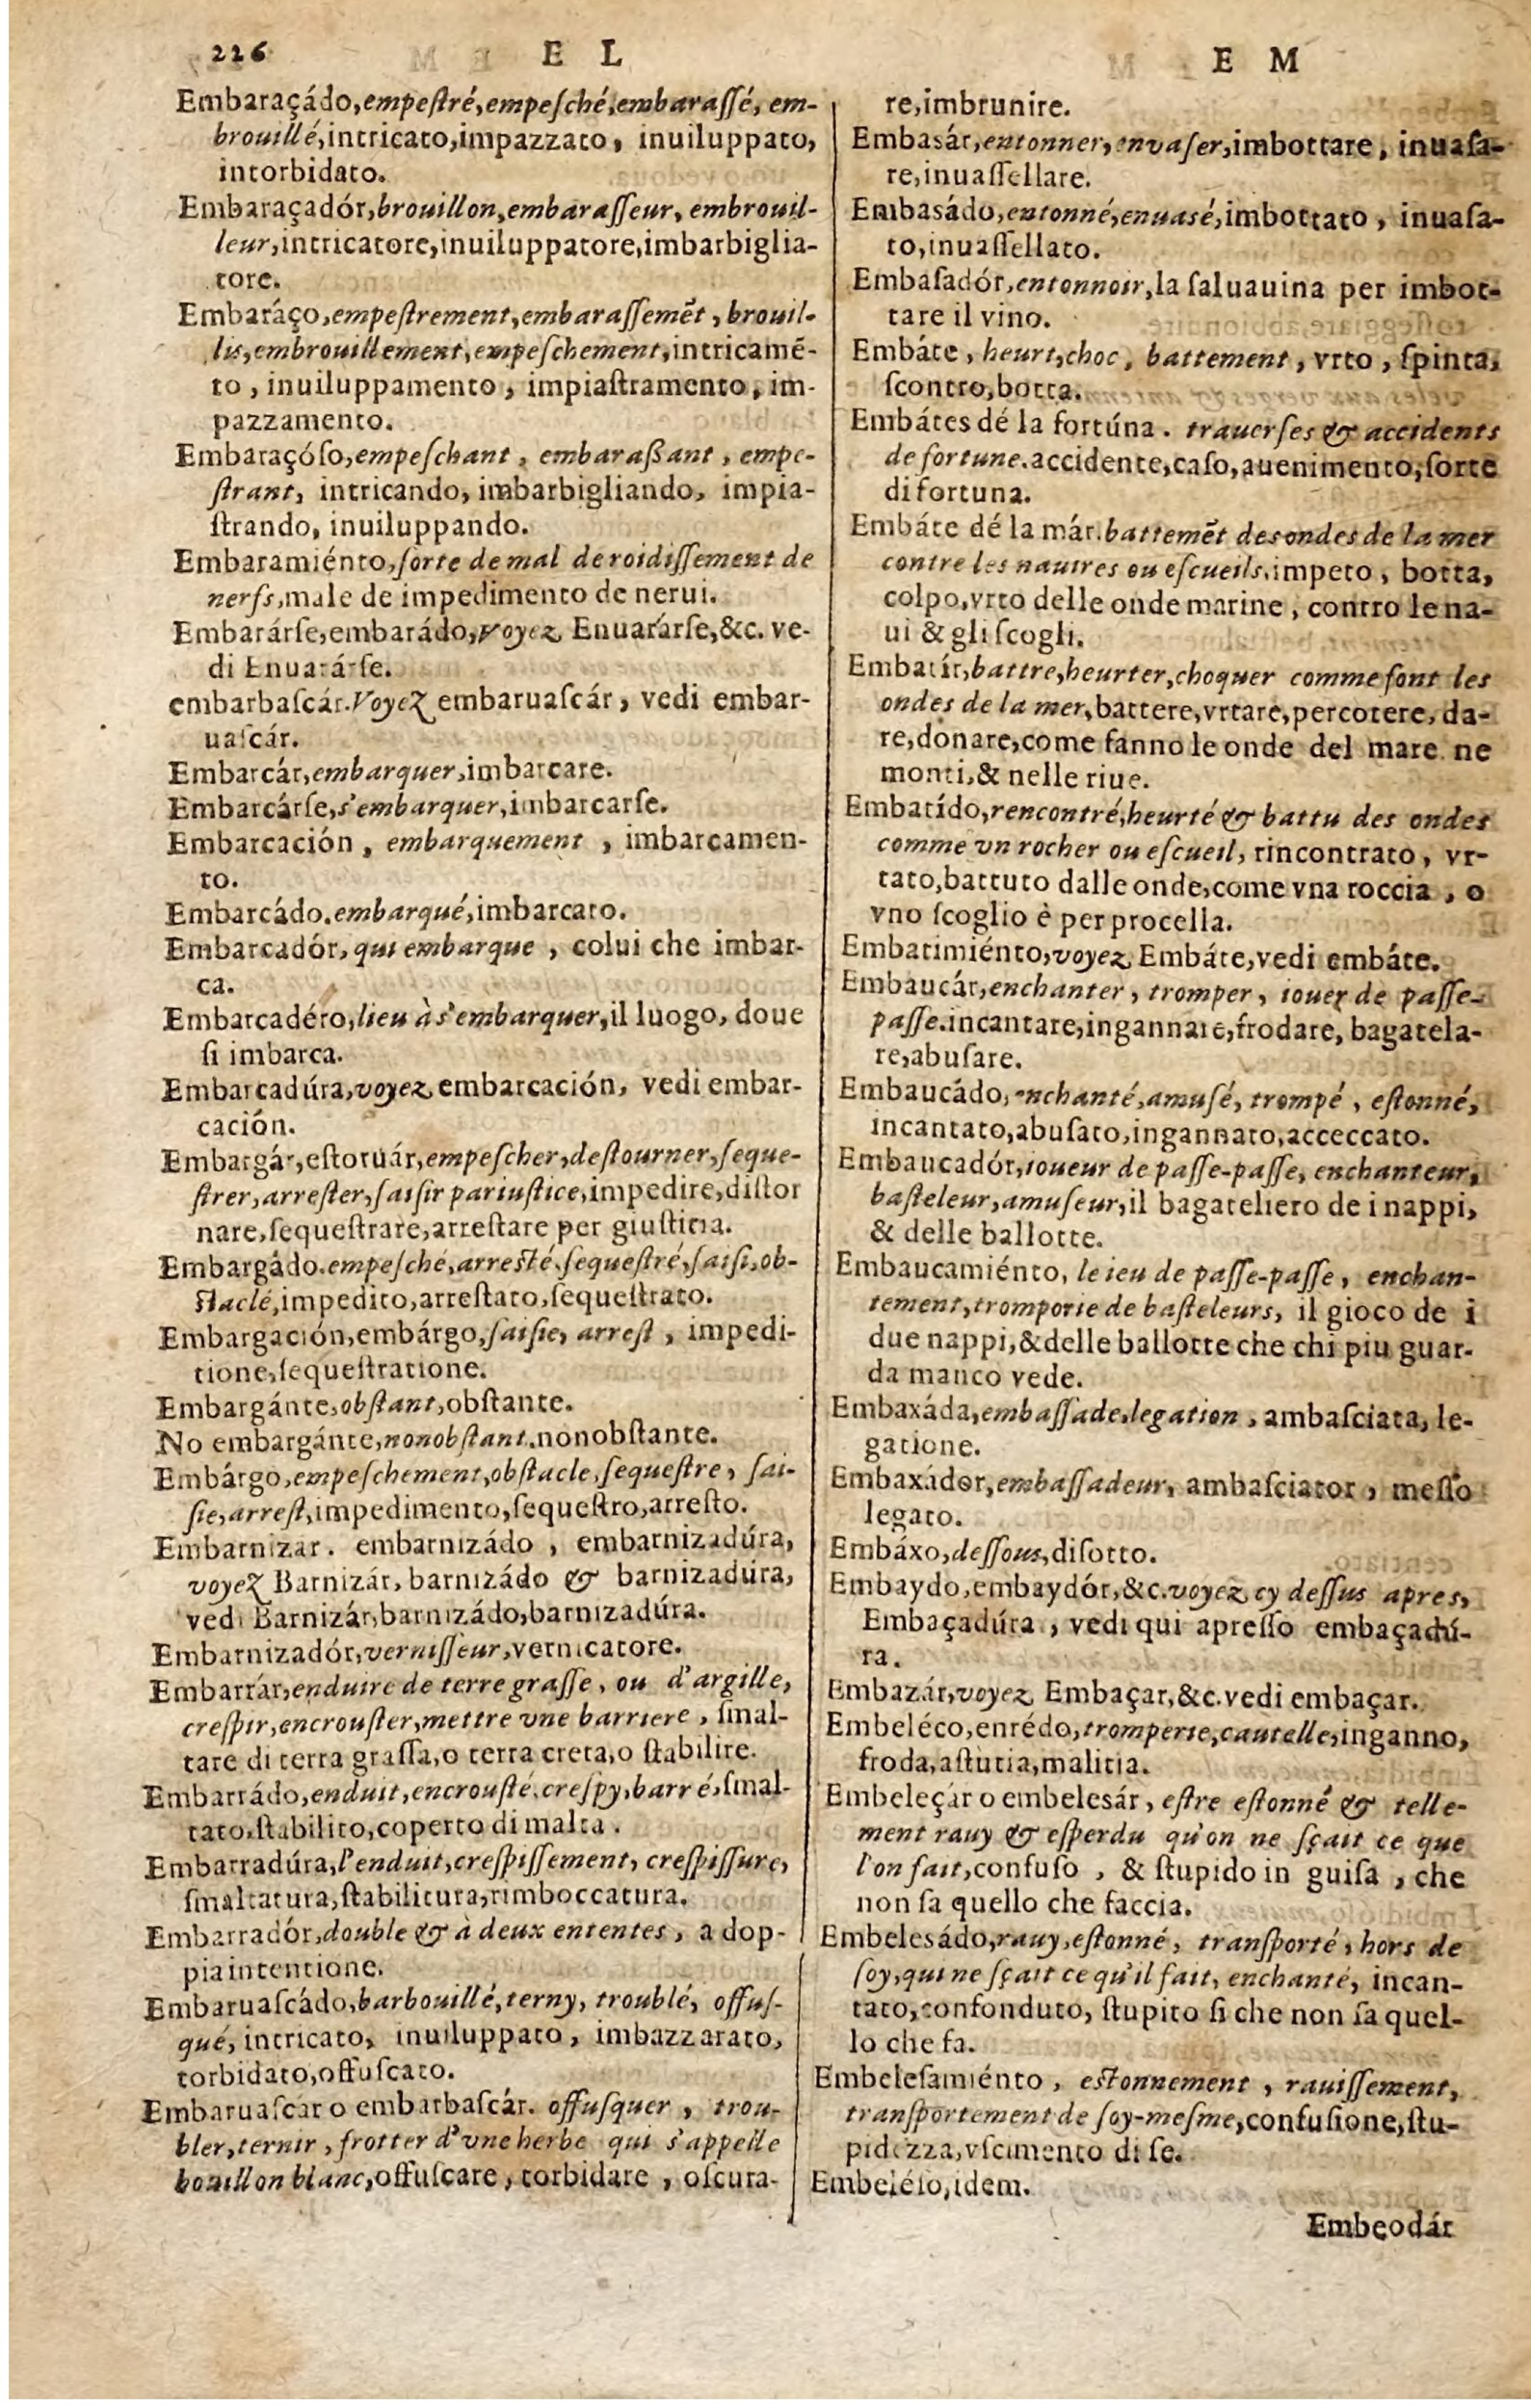 226 E L
E M
Embaraçádo, empeſtré, empeſché, embaraſſé, em-
brouillé, intricato, impazzato, inuiluppato,
intorbidato.
Embaraçadór, brouillon, embaraſſeur, embrouil-
leur, intricatore, inuiluppatore, imbarbiglia-
tore.
Embaráço, empeſtrement, embaraſſemẽt, brouil-
lis, embrouillement, empeſchement, intricamẽ-
to, inuiluppamento, impiaſtramento, im-
pazzamento.
Embaraçóſo, empeſchant, embaraßant, empe-
ſtrant, intricando, imbarbigliando, impia-
ſtrando, inuiluppando.
Embaramiénto, ſorte de mal de roidiſſement de
nerfs, male de impedimento de nerui.
Embarárſe, embarádo, voyez Enuarárſe, &c. ve-
di Enuarárſe.
embarbaſcár. Voyez embaruaſcár, vedi embar-
uaſcár.
Embarcár, embarquer, imbarcare.
Embarcárſe, s'embarquer, imbarcarſe.
Embarcación, embarquement, imbarcamen-
to.
Embarcádo. embarqué, imbarcato.
Embarcadór, qui embarque, colui che imbar-
ca.
Embarcadéro, lieu à s'embarquer, il luogo, doue
ſi imbarca.
Embarcadúra, voyez embarcación, vedi embar-
cación.
Embargár, eſtoruár, empeſcher, deſtourner, ſeque-
ſtrer, arreſter, ſaiſir par iuſtice, impedire, diſtor
nare, ſequeſtrare, arreſtare per giuſtitia.
Embargádo. empeſché, arreſté, ſequeſtré, ſaiſi, ob-
ſtaclé, impedito, arreſtato, ſequeſtrato.
Embargación, embárgo, ſaiſie, arreſt, impedi-
tione, ſequeſtratione.
Embargánte, obſtant, obſtante.
No embargánte, nonobſtant. nonobſtante.
Embárgo, empeſchement, obſtacle, ſequeſtre, ſai-
ſie, arreſt, impedimento, ſequeſtro, arreſto.
Embarnizar. embarnizádo, embarnizadúra,
voyez Barnizár, barnizádo & barnizadúra,
vedi Barnizár, barnizádo, barnizadúra.
Embarnizadór, verniſſeur, vernicatore.
Embarrár, enduire de terre graſſe, ou d'argille,
creſpir, encrouſter, mettre vne barriere, ſmal-
tare di terra graſſa, o terra creta, o ſtabilire.
Embarrádo, enduit, encrouſté, creſpy, barré, ſmal-
tato, ſtabilito, coperto di malta.
Embarradúra, l'enduit, creſpiſſement, creſpiſſure,
ſmaltatura, ſtabilitura, rimboccatura.
Embarradór, double & à deux ententes, a dop-
pia intentione.
Embaruaſcádo, barbouillé, terny, troublé, offuſ-
qué, intricato, inuiluppato, imbazzarato,
torbidato, offuſcato.
Embaruaſcar o embarbaſcár. offuſquer, trou-
bler, ternir, frotter d'vne herbe qui s'appelle
bouillon blanc, offuſcare, torbidare, oſcura-
re, imbrunire.
Embasár, entonner, envaſer, imbottare, inuaſa-
re, inuaſſellare.
Embasádo, entonné, enuasé, imbottato, inuaſa-
to, inuaſſellato.
Embaſadór, entonnoir, la ſaluauina per imbot-
tare il vino.
Embáte, heurt, choc, battement, vrto, ſpinta,
ſcontro, botta.
Embátes dé la fortúna. trauerſes & accidents
de fortune. accidente, caſo, auenimento, ſorte
di fortuna.
Embáte dé la már. battemẽt des ondes de la mer
contre les nauires ou eſcueils, impeto, botta,
colpo, vrto delle onde marine, contro le na-
ui & gli ſcogli.
Embatír, battre, heurter, choquer comme font les
ondes de la mer, battere, vrtare, percotere, da-
re, donare, come fanno le onde del mare ne
monti, & nelle riue.
Embatído, rencontré, heurté & battu des ondes
comme vn rocher ou eſcueil, rincontrato, vr-
tato, battuto dalle onde, come vna roccia, o
vno ſcoglio è per procella.
Embatimiénto, voyez Embáte, vedi embáte.
Embaucár, enchanter, tromper, iouer de paſſe-
paſſe. incantare, ingannare, frodare, bagatela-
re, abuſare.
Embaucádo, enchanté, amuſé, trompé, eſtonné,
incantato, abuſato, ingannato, acceccato.
Embaucadór, ioueur de paſſe-paſſe, enchanteur,
baſteleur, amuſeur, il bagateliero de i nappi,
& delle ballotte.
Embaucamiénto, le ieu de paſſe-paſſe, enchan-
tement, tromperie de baſteleurs, il gioco de i
due nappi, & delle ballotte che chi piu guar-
da manco vede.
Embaxáda, embaſſade, legation, ambaſciata, le-
gatione.
Embaxádor, embaſſadeur, ambaſciator, meſſo
legato.
Embáxo, deſſous, diſotto.
Embaydo, embaydór, &c. voyez cy deſſus apres,
Embaçadúra, vedi qui apreſſo embaçadú-
ra.
Embazár, voyez Embaçar, &c. vedi embaçar.
Embeléco, enrédo, tromperie, cautelle, inganno,
froda, aſtutia, malitia.
Embeleçár o embelesár, eſtre eſtonné & telle-
ment rauy & eſperdu qu'on ne ſçait ce que
l'on fait, confuſo, & ſtupido in guiſa, che
non ſa quello che faccia.
Embelesádo, rauy, eſtonné, tranſporté, hors de
ſoy, qui ne ſçait ce qu'il fait, enchanté, incan-
tato, confonduto, ſtupito ſi che non ſa quel-
lo che fa.
Embeleſamiénto, eſtonnement, rauiſſement,
tranſportement de ſoy-meſme, confuſione, ſtu-
pidezza, vſcimento di ſe.
Embeléſo, idem.
Embeodár